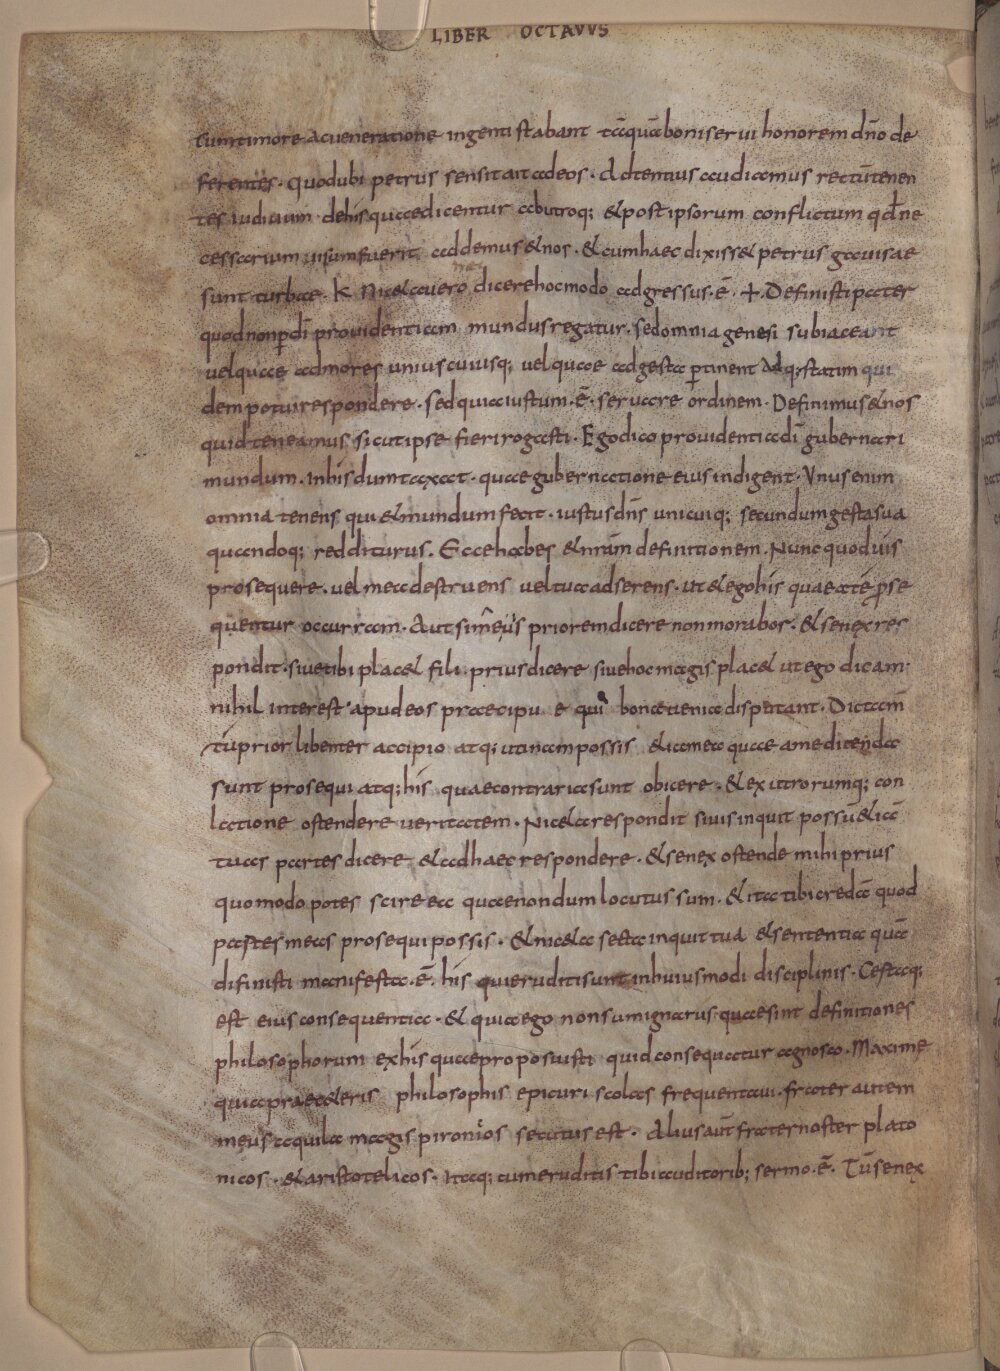 LIBER OCTAVVS
cumtimore acueneratione ingenti stabant tāquāboniserui honorem dn̄o de
ferentes · quodubi petrus sensit ait adeos · Adtentius audiamus rectū tenen
tes iudicium dehisquaedicentur abutroq; & post ipsorum conflictum qd̄ ne
cessarium uisumfuerit addemus & nos · & cumhaec dixiss& petrus gauisae
sunt turbae · K Nic&auero dicerehocmodo adgressus · ē · Definisti pater
quodnonp̄di prouidentiam mundus regatur · sedomnia genesi subiaceant
uelquae admores uniuscuiusq; uelquae adgesta p̄tinent Adq; statim qui
dem potui respondere · sed quia iustum · ē · seruare ordinem · Definimus & nos
quid teneamus sicut ipse fieri rogasti · Egodico prouidentiadī gubernari
mundum · Inhis dumtaxat · quae gubernatione eius indigent · Vnus enim
omnia tenens qui & mundum fecit · iustus dn̄s unicuiq; secundum gesta sua
quandoq; redditurus · Ecce habes & nr̄am definitionem · Nunc quod uis
prosequere · uel mea destruens uel tua adserens · ut & ego his quae a te p̄se
quentur occurram · Aut si me uis priorem dicere non morabor · & senex res
pondit · siue tibi plac& fili · prius dicere siue hoc magis plac& ut ego dicam ·
nihil interest apud eos praecipue qui bonae uenia disputant · Dictam̄
tu prior libenter accipio atq; utinam possis & iam ea quae a me dicenda
sunt prosequi atq; his quae contraria sunt obicere · & ex utrorumq; con
latione ostendere ueritatem · Nic&a respondit si uis inquit possū & iā
tuas partes dicere & ad haec respondere · & senex ostende mihi prius
quomodo potes scire ea quae nondum locutus sum · & ita tibi credā quod
partes meas prosequi possis · & nic&a secta inquit tua & sententia quā
difinisti manifesta · ē · his qui eruditi sunt in huiusmodi disciplinis · Certaq;
est eius consequentia · & quia ego non sum ignarus quae sint definitiones
philosophorum ex his quae proposuisti quid consequatur agnosco · Maxime
quia prae c&eris philosophis epicuri scolas frequentaui · frater autem
meus aquila magis pironios secutus est · Alius aūt frater noster plato
nicos · & aristotelicos · Itaq; cum eruditis tibi auditorib; sermo · ē · Tū senex